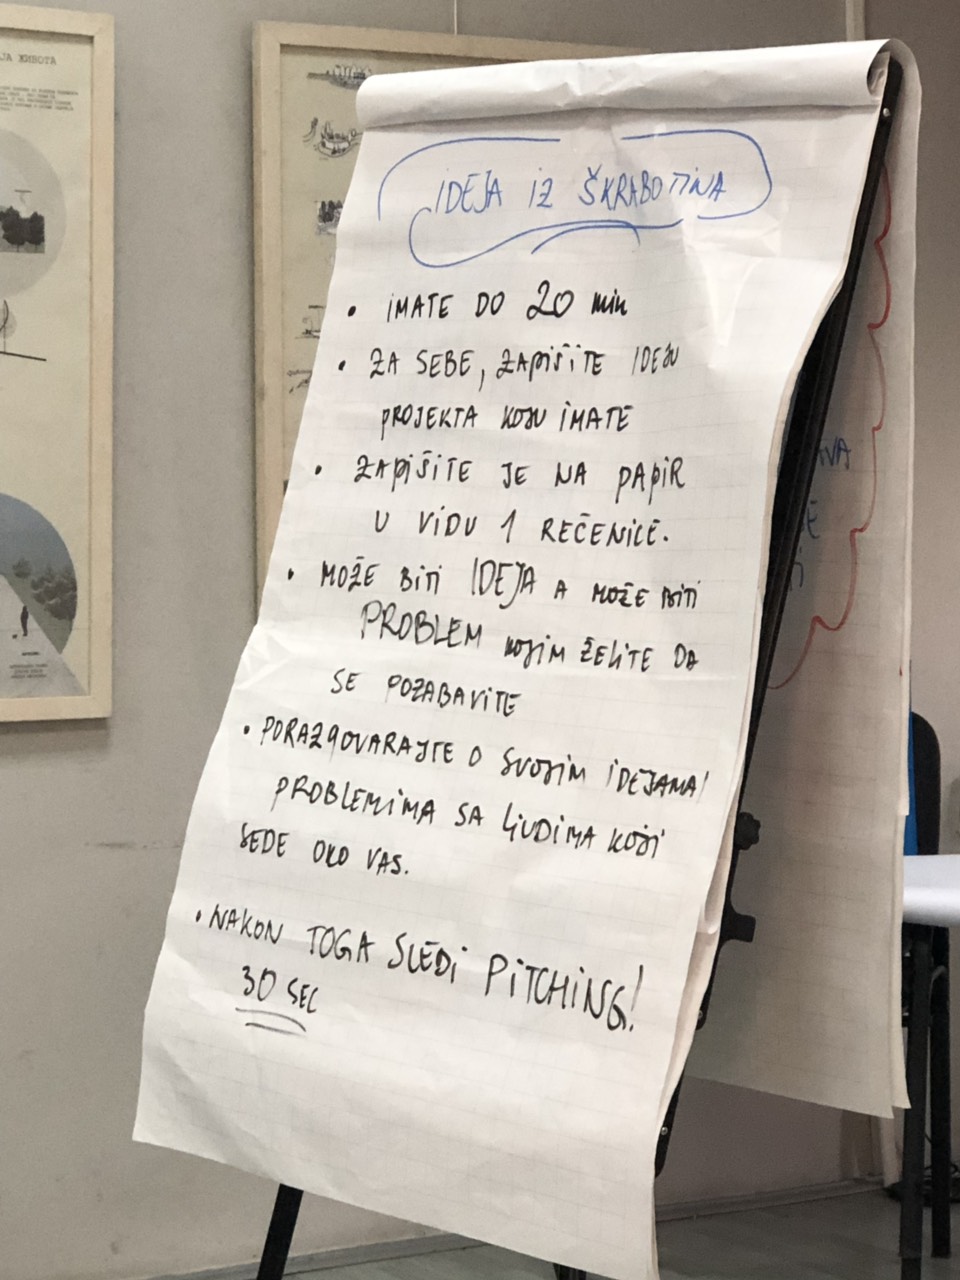 ЈА ЖИВОТА
IDEJA IZ ŠKRABOTINA
• IMATE DO 20 min
• ZA SEBE, ZAPIŠITE IDEJU
PROJEKTA KOJU IMATE
• ZAPIŠITE JE NA PAPIR
U VIDU 1 REČENICE.
• MOŽE BITI IDEJA A MOŽE BITI
PROBLEM KOJIM ŽELITE DA
SE POZABAVITE
• PORAZGOVARAJTE O SVOJIM IDEJAMA/
PROBLEMIMA SA LJUDIMA KOJI
SEDE OKO VAS.
• NAKON TOGA SLEDI PITCHING!
30 SEC